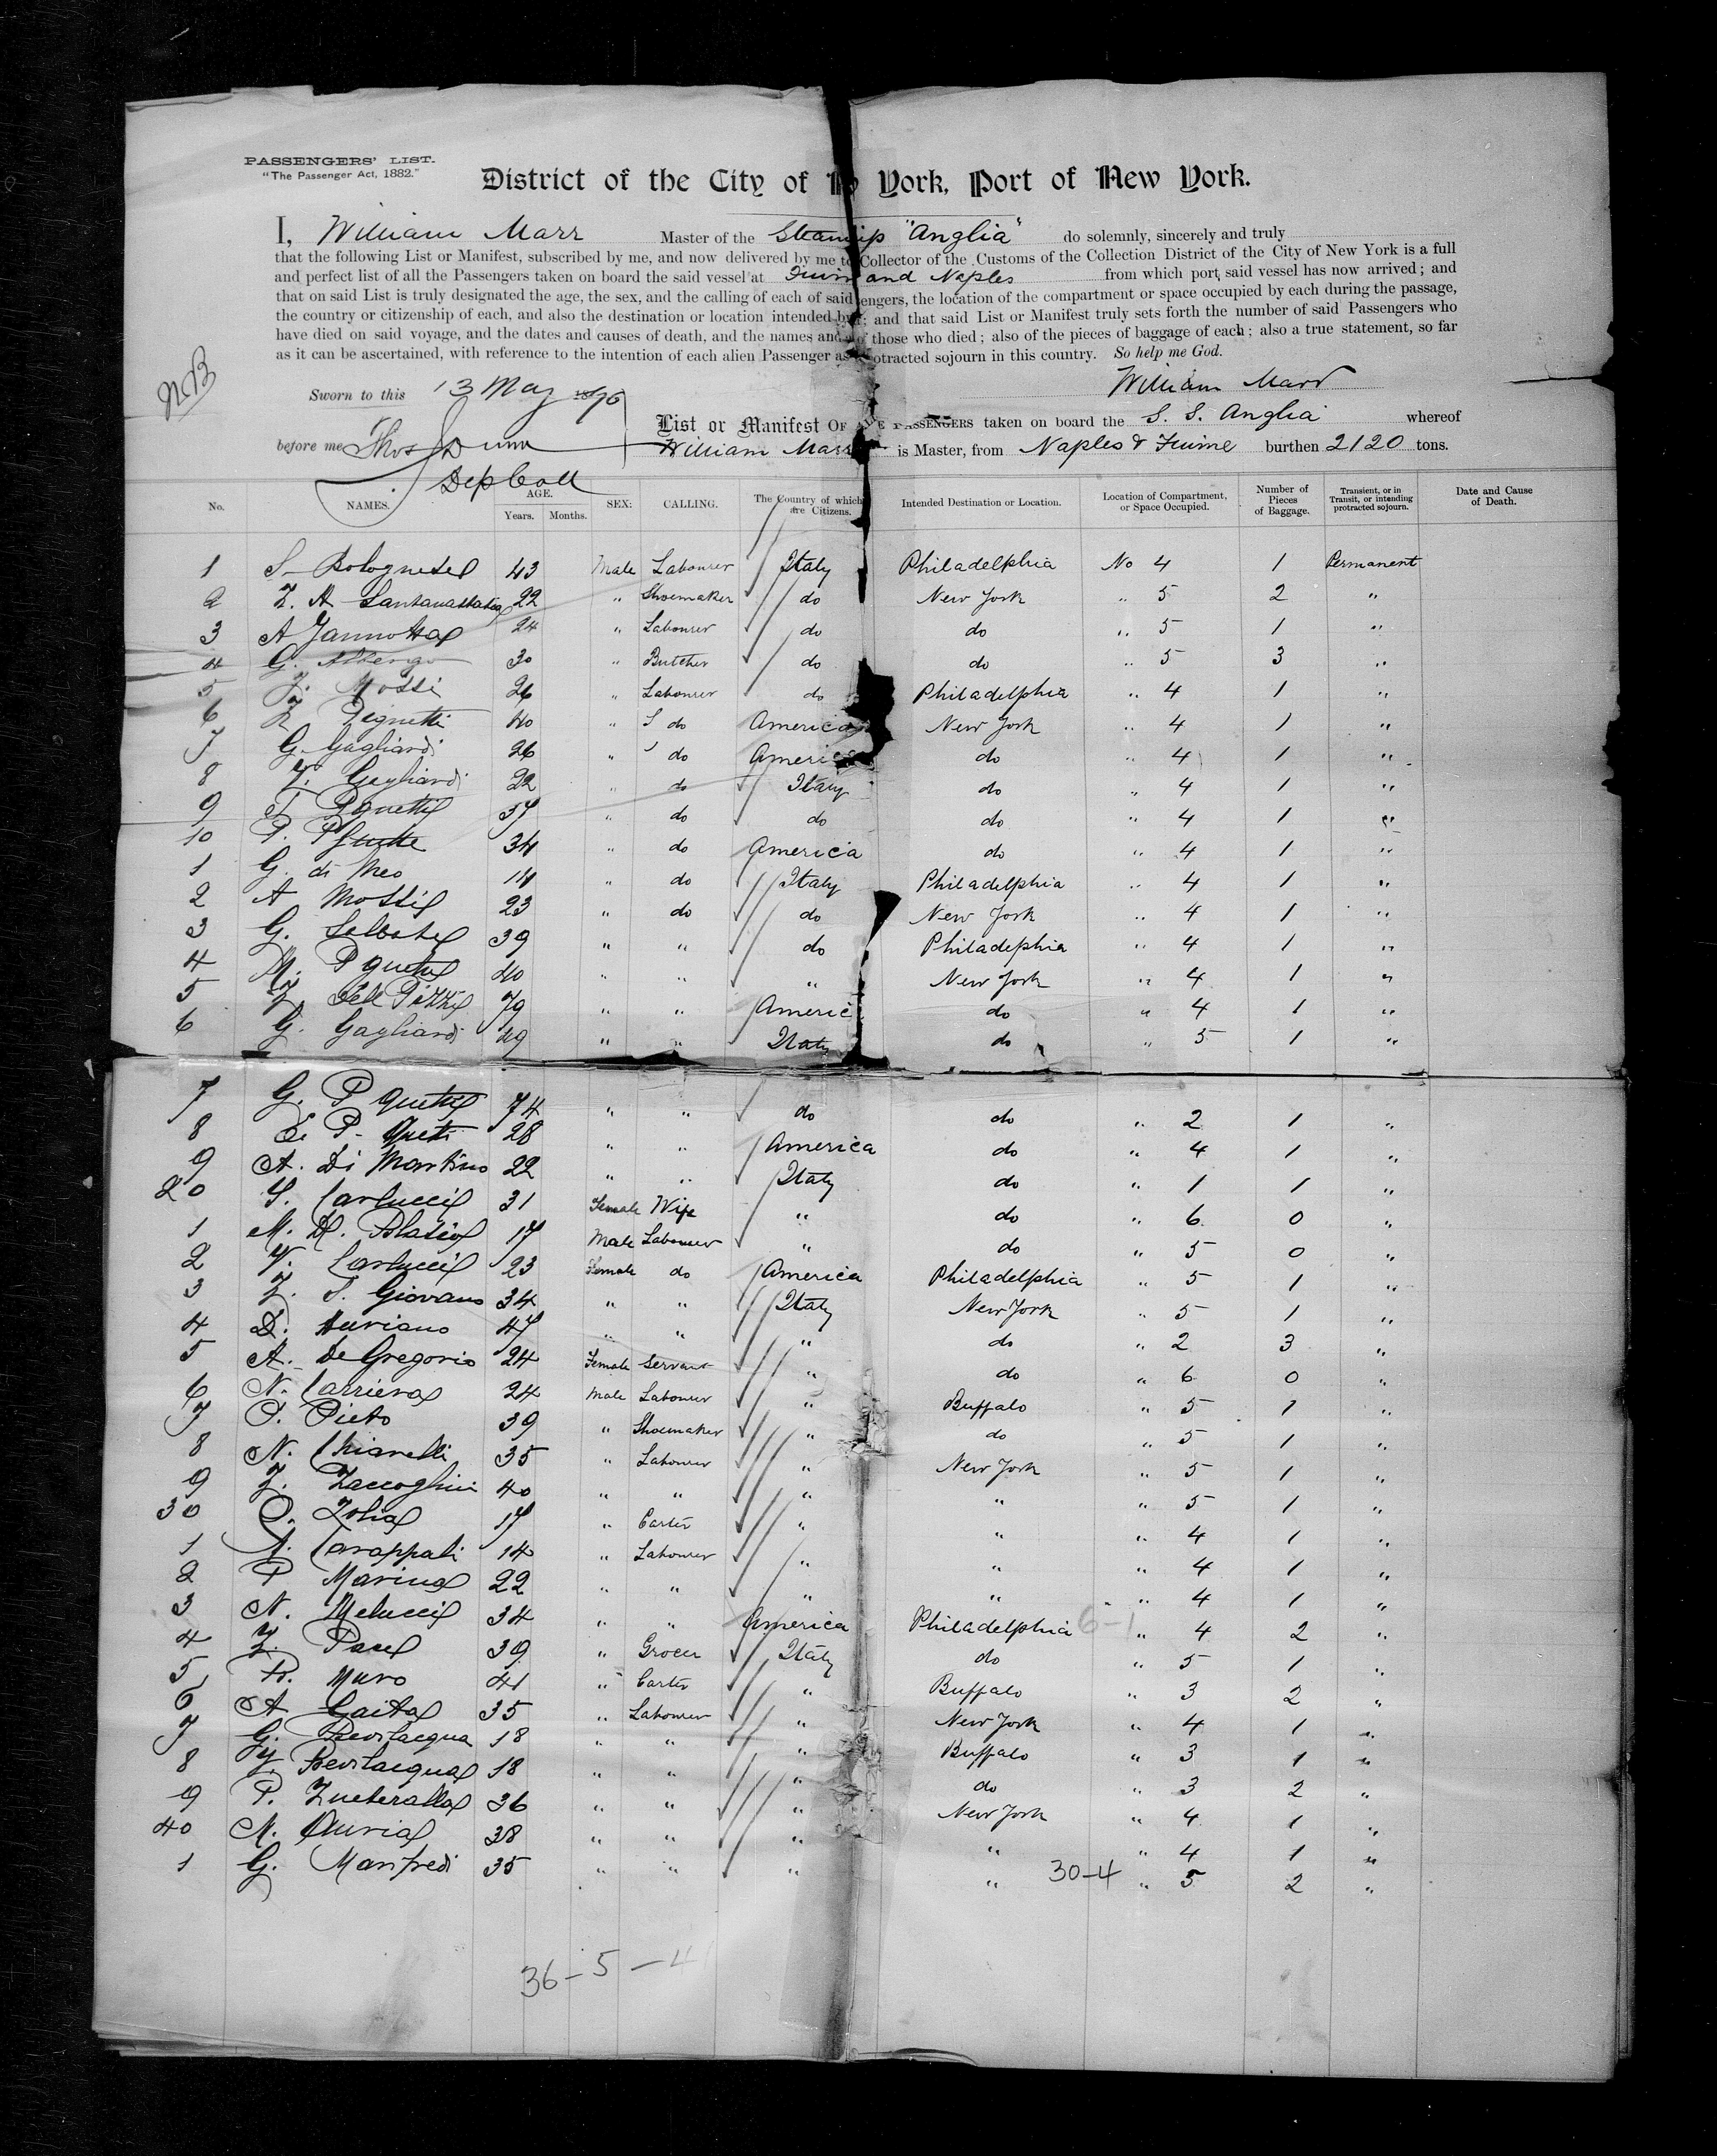 PASSENGERS' LIST.
"The Passenger Act, 1882."
District of the City of York, Port of New York.
I, William Marr Master of the "Anglia" do solemnly, sincerely and truly
that the following List or Manifest, subscribed by me, and now delivered by me to Collector of the Customs of the Collection District of the City of New York is a full
and perfect list of all the Passengers taken on board the said vessel at and Naples from which port, said vessel has now arrived; and
that on said List is truly designated the age, the sex, and the calling of each of said engers, the location of the compartment or space occupied by each during the passage,
the country or citizenship of each, and also the destination or location intended by ; and that said List or Manifest truly sets forth the number of said Passengers who
have died on said voyage, and the dates and causes of death, and the names and of those who died; also of the pieces of baggage of each; also a true statement, so far
as it can be ascertained, with reference to the intention of each alien Passenger as otracted sojourn in this country. So help me God.
NB
William Marr
Sworn to this 13 May 1896
List or Manifest OF PASSENGERS taken on board the S. S. Anglia whereof
before me Thos Dunn William Marr is Master, from Naples & Fiume burthen 2120 tons.
Dep Coll
No. NAMES. AGE. Years. Months. SEX: CALLING. The Country of which are Citizens. Intended Destination or Location. Location of Compartment, or Space Occupied. Number of Pieces of Baggage. Transient, or in Transit, or intending protracted sojourn. Date and Cause of Death.
1 S Bolognese 43 Male Labourer Italy Philadelphia No 4 1 Permanent
2 22 " Shoemaker do New York " 5 2 "
3 A 24 " Labourer do do " 5 1 "
4 G. 30 " Butcher do do " 5 3 "
5 Mossi 26 " Labourer do Philadelphia " 4 1 "
6 Pignetti 40 " do America New York " 4 1 "
7 G. Gagliardi 26 " do America do " 4 1 "
8 Gagliardi 22 " do Italy do " 4 1 "
9 37 " do do do " 4 1 "
10 P. 34 " do America do " 4 1 "
1 G. di Meo " do Italy Philadelphia " 4 1 "
2 A Mossi 23 " do do New York " 4 1 "
3 G. 39 " " do Philadephia " 4 1 "
4 M. 40 " " " New York " 4 1 "
5 79 " " Americ do " 4 1 "
6 G. Gagliardi 49 " " Italy do " 5 1 "
7 G. 74 " " do do " 2 1 "
8 28 " " America do " 4 1 "
9 A. Di Martino 22 " " Italy do " 1 1 "
20 Carlucci 31 Female Wife " do " 6 0 "
1 M. Blasio 17 Male Labourer " do " 5 0 "
2 V. Carlucci 23 Female do America Philadelphia " 5 1 "
3 Giovano 34 " " Italy New York " 5 1 "
4 D. Auriano 47 " " " do " 2 3 "
5 A. De Gregorio 24 Female Servant " do " 6 0 "
6 N. Carriera 24 Male Labourer " Buffalo " 5 1 "
7 Pieto 39 " Shoemaker " do " 5 1 "
8 N. Chiarelli 35 " Labourer " New York " 5 1 "
9 Zaccoglini 40 " " " " " 5 1 "
30 17 " Carter " " " 4 1 "
1 14 " Labourer " " " 4 1 "
2 P Marina 22 " " " " " 4 1 "
3 N. Melucci 34 " " America Philadelphia 6-1 " 4 2 "
4 Pace 39 " Grocer Italy do " 5 1 "
5 Muro 41 " Carter " Buffalo " 3 2 "
6 A Gaita 35 " Labourer " New York " 4 1 "
7 G. Bevilacqua 18 " " " Buffalo " 3 1 "
8 Bevilacqua 18 " " " do " 3 2 "
9 P. 36 " " " New York " 4 1 "
40 38 " " " " " 4 1 "
1 G. Manfredi 35 " " " " 30-4 " 5 2 "
36-5-4